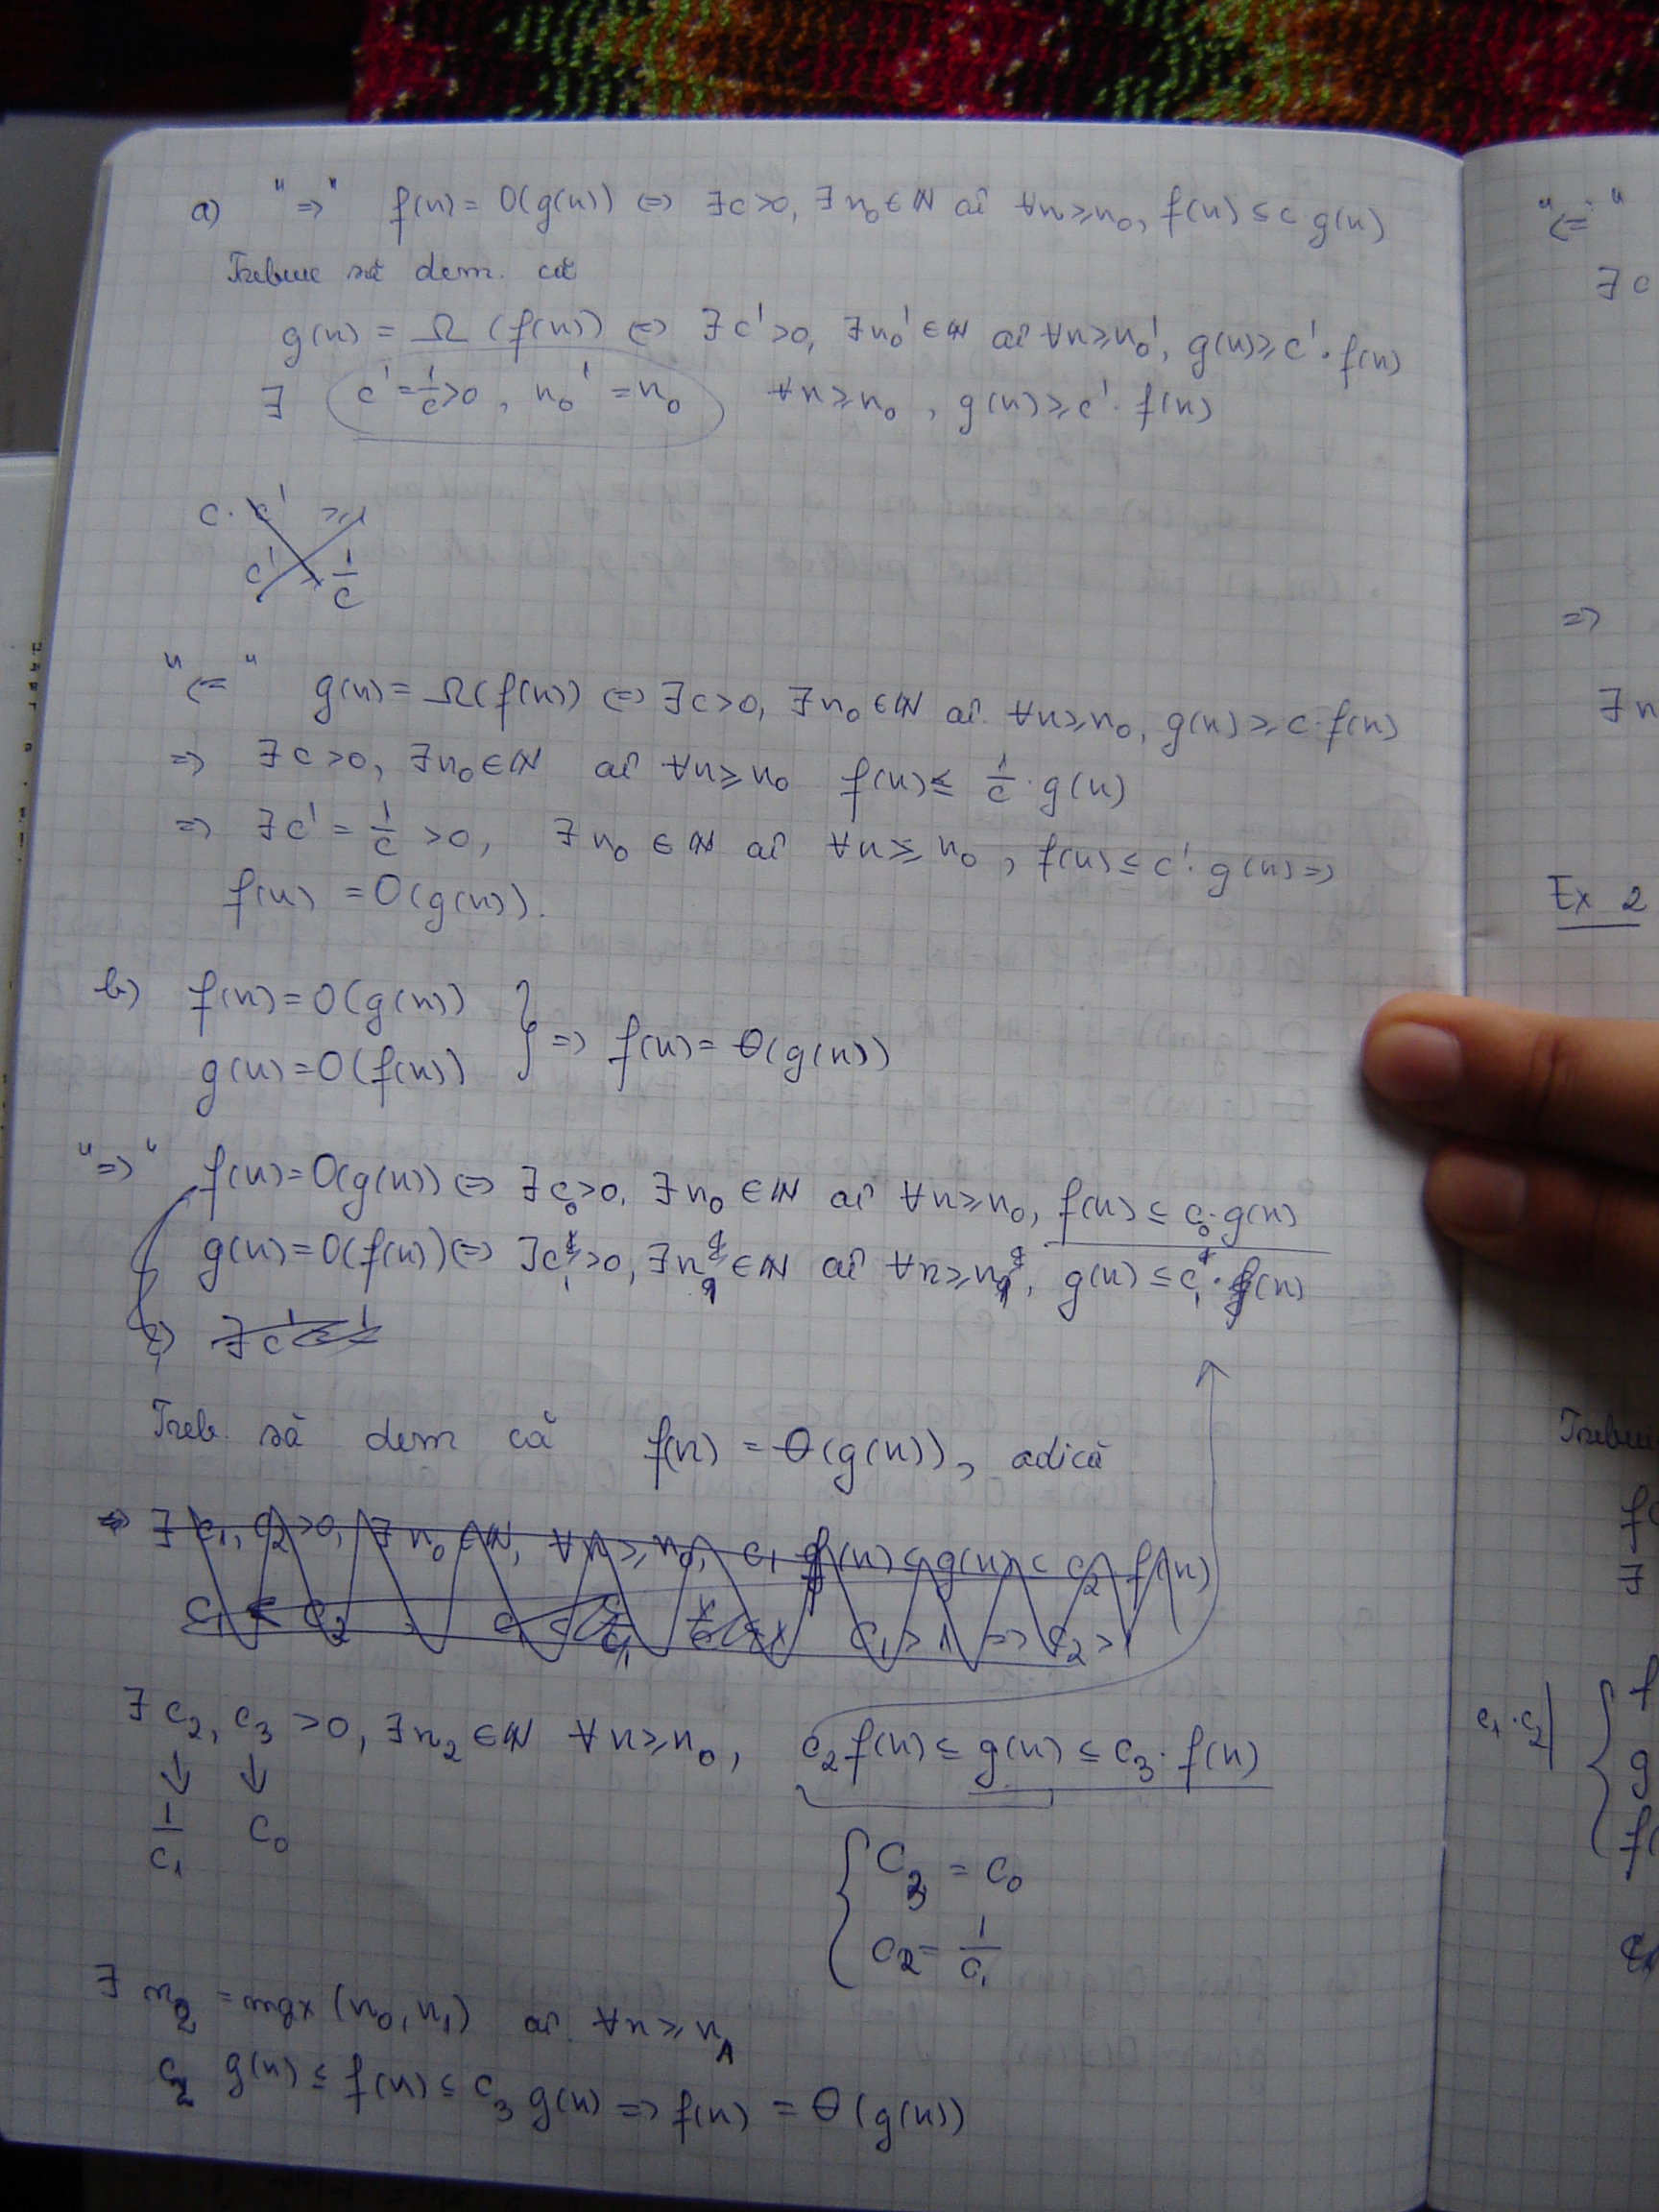 a) "=>" f(n) = O(g(n)) <=> ∃c>0, ∃n₀∈ℕ aî ∀n≥n₀, f(n) ≤ c·g(n)
Trebuie să dem. că
g(n) = Ω(f(n)) <=> ∃c'>0, ∃n₀'∈ℕ aî ∀n≥n₀', g(n)≥c'·f(n)
∃ c'=1/c>0, n₀'=n₀ ∀n≥n₀, g(n)≥c'·f(n)
c·c' ≥1
c' 1/c
"<=" g(n)=Ω(f(n)) <=> ∃c>0, ∃n₀∈ℕ aî. ∀n≥n₀, g(n)≥c·f(n)
=> ∃c>0, ∃n₀∈ℕ aî ∀n≥n₀ f(n)≤ 1/c·g(n)
=> ∃c'=1/c>0, ∃n₀∈ℕ aî ∀n≥n₀, f(n)≤c'·g(n)=>
f(n) = O(g(n)).
b) f(n)=O(g(n))
g(n)=O(f(n)) } => f(n)=Θ(g(n))
"=>" f(n)=O(g(n)) <=> ∃c₀>0, ∃n₀∈ℕ aî ∀n≥n₀, f(n)≤c₀·g(n)
g(n)=O(f(n)) <=> ∃c₁>0, ∃n₁∈ℕ aî ∀n≥n₁, g(n)≤c₁·f(n)
∃c'
Treb. să dem că f(n) = Θ(g(n)), adică
=> ∃c₁, c₂>0, ∃n₀∈ℕ, ∀n≥n₀, c₁ f(n)≤g(n)≤c₂ f(n)
c₁ c₂ c₁>1 => c₂>1
∃c₂, c₃>0, ∃n₂∈ℕ ∀n≥n₀, c₂f(n)≤g(n)≤c₃·f(n)
↓ ↓
1/c₁ c₀
{ c₃ = c₀
c₂ = 1/c₁
∃ n₂ = max(n₀, n₁) aî. ∀n≥n
c₂ g(n)≤f(n)≤c₃ g(n) => f(n) = Θ(g(n))
"<="
∃c
=>
∃n
Ex 2
c₁·c₂|